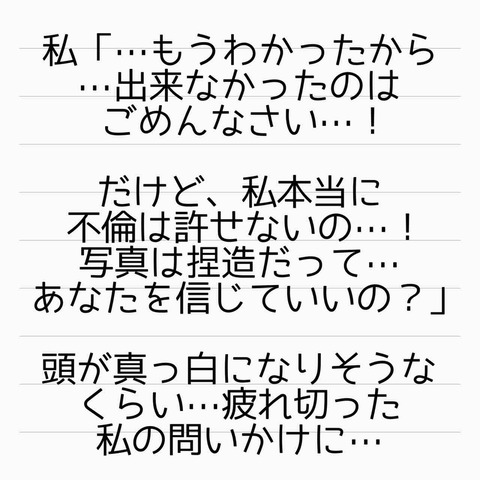 私「…もうわかったから
…出来なかったのは
ごめんなさい…！
だけど、私本当に
不倫は許せないの…！
写真は捏造だって…
あなたを信じていいの？」
頭が真っ白になりそうな
くらい…疲れ切った
私の問いかけに…